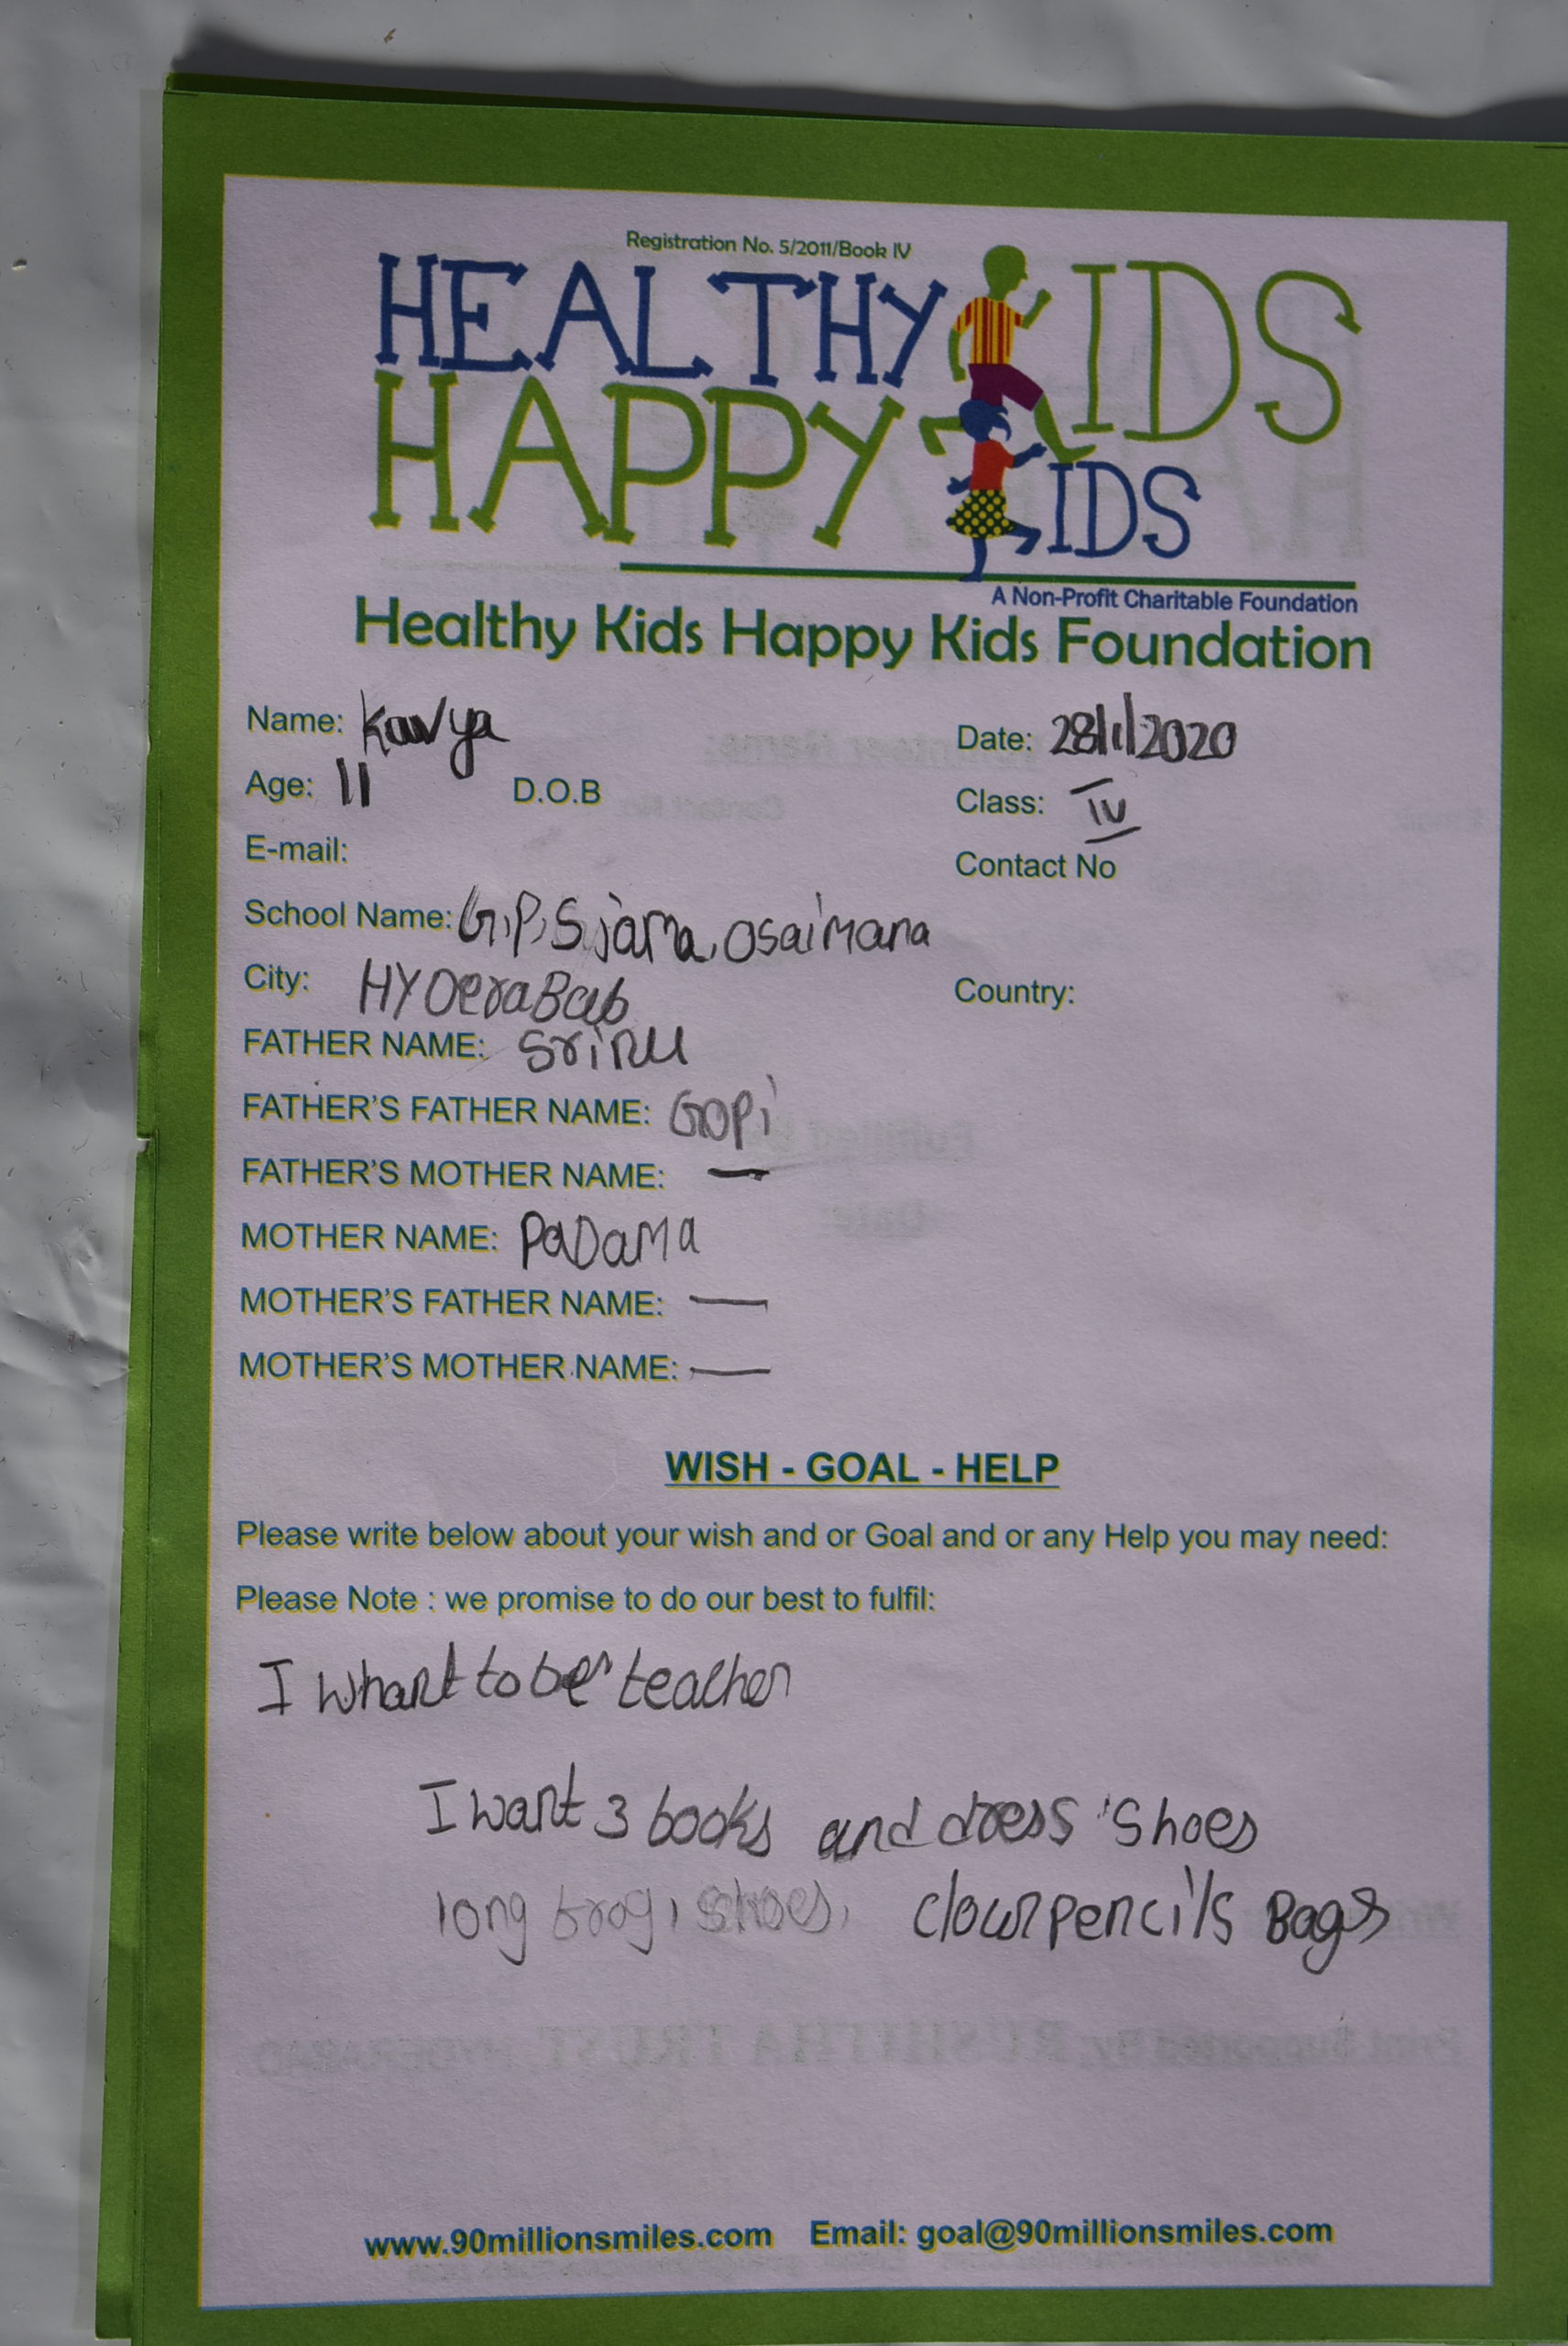 Registration No. 5/2011/Book IV
HEALTHY KIDS
HAPPY KIDS
A Non-Profit Charitable Foundation
Healthy Kids Happy Kids Foundation
Name: Kavya Date: 28/1/2020
Age: 11 D.O.B Class: IV
E-mail: Contact No
School Name: G.P.S jama, osaimana
City: HYDeraBab Country:
FATHER NAME: Srinu
FATHER'S FATHER NAME: Gopi
FATHER'S MOTHER NAME: —
MOTHER NAME: PaDama
MOTHER'S FATHER NAME: —
MOTHER'S MOTHER NAME: —
WISH - GOAL - HELP
Please write below about your wish and or Goal and or any Help you may need:
Please Note : we promise to do our best to fulfil:
I whant to be teacher
I want 3 books and dress shoes
long frog, shoes, clour pencils Bags
www.90millionsmiles.com Email: goal@90millionsmiles.com